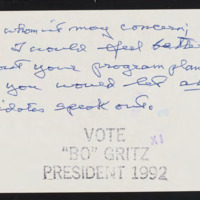 whom it may concern;
I would feel better
out your program plan
you would let all
idates speak out.
VOTE
"BO" GRITZ
PRESIDENT 1992